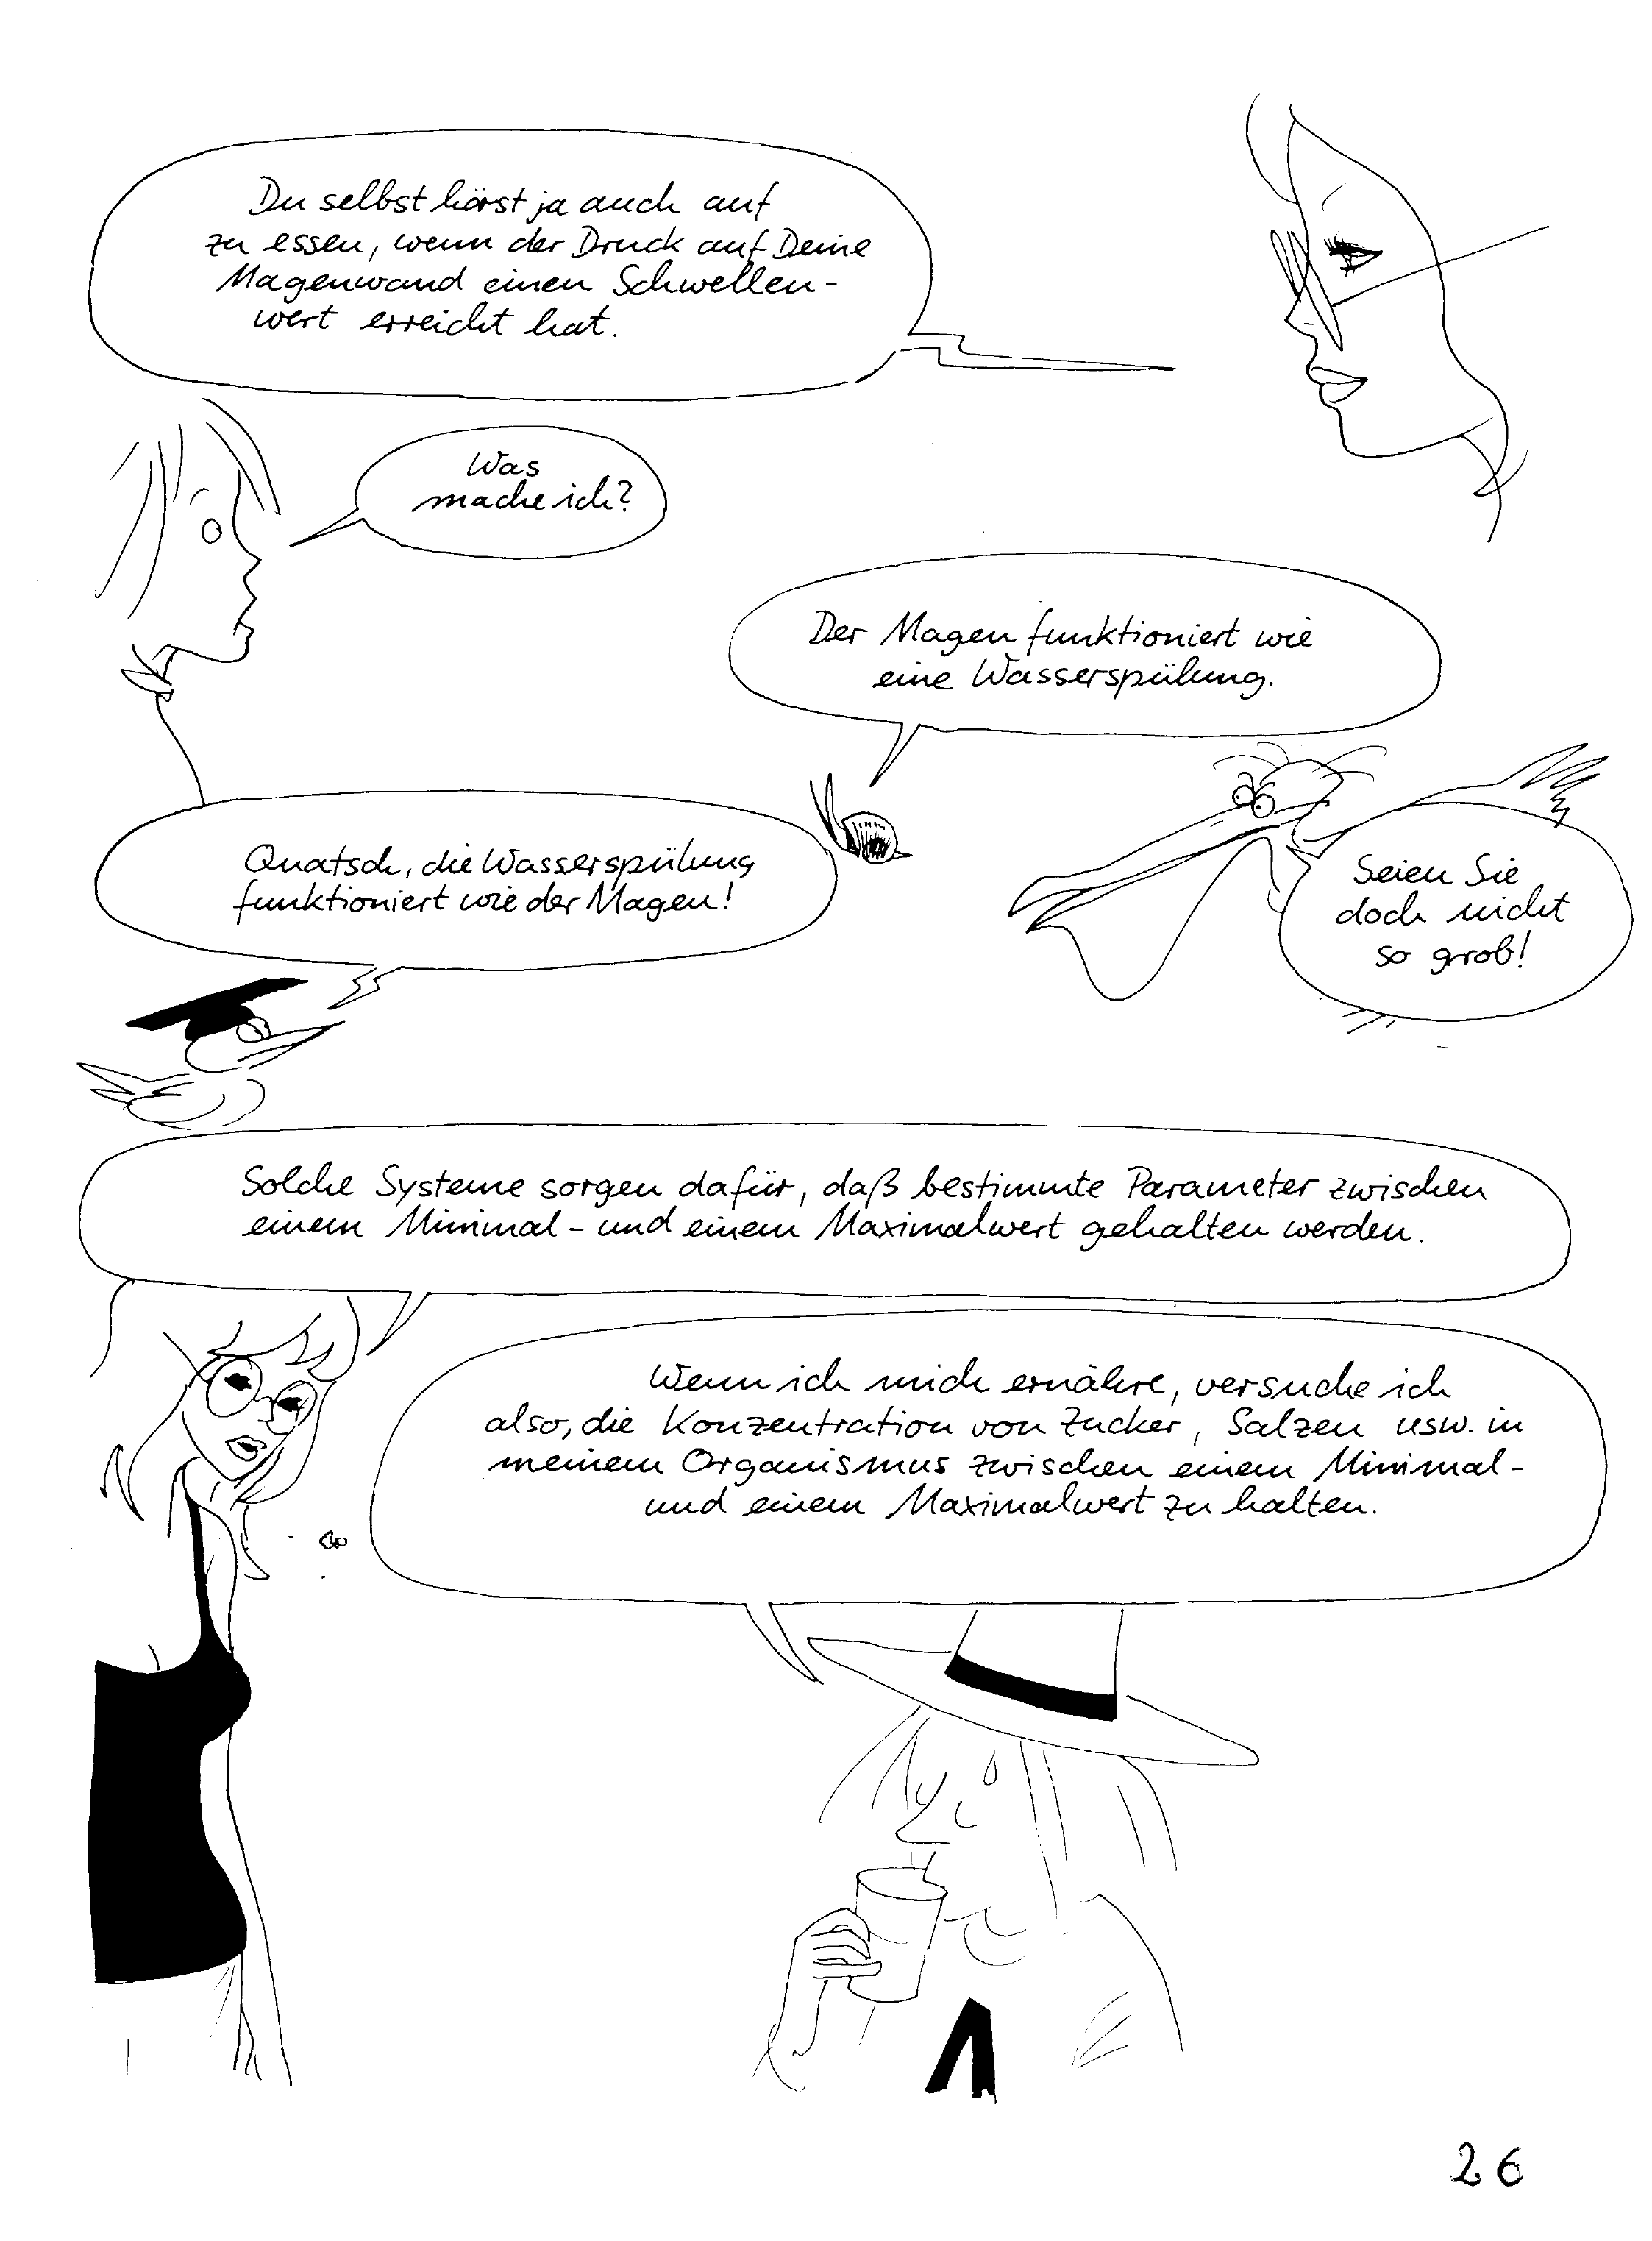 Du selbst hörst ja auch auf
zu essen, wenn der Druck auf Deine
Magenwand einen Schwellen-
wert erreicht hat.
Was
mache ich?
Der Magen funktioniert wie
eine Wasserspülung.
Quatsch, die Wasserspülung
funktioniert wie der Magen!
Seien Sie
doch nicht
so grob!
Solche Systeme sorgen dafür, daß bestimmte Parameter zwischen
einem Minimal- und einem Maximalwert gehalten werden.
Wenn ich mich ernähre, versuche ich
also, die Konzentration von Zucker, Salzen usw. in
meinem Organismus zwischen einem Minimal-
und einem Maximalwert zu halten.
26